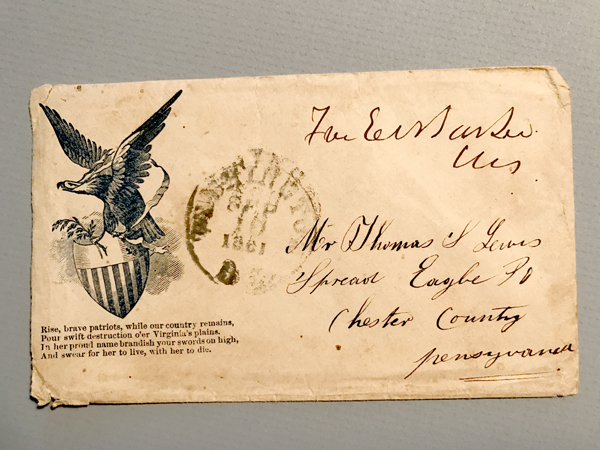 Mr Thomas S Lewis
Spread Eagle Po
Chester County
pensyvania
WASHINGTON
SEP
1861
Rise, brave patriots, while our country remains,
Pour swift destruction o'er Virginia's plains.
In her proud name brandish your swords on high,
And swear for her to live, with her to die.